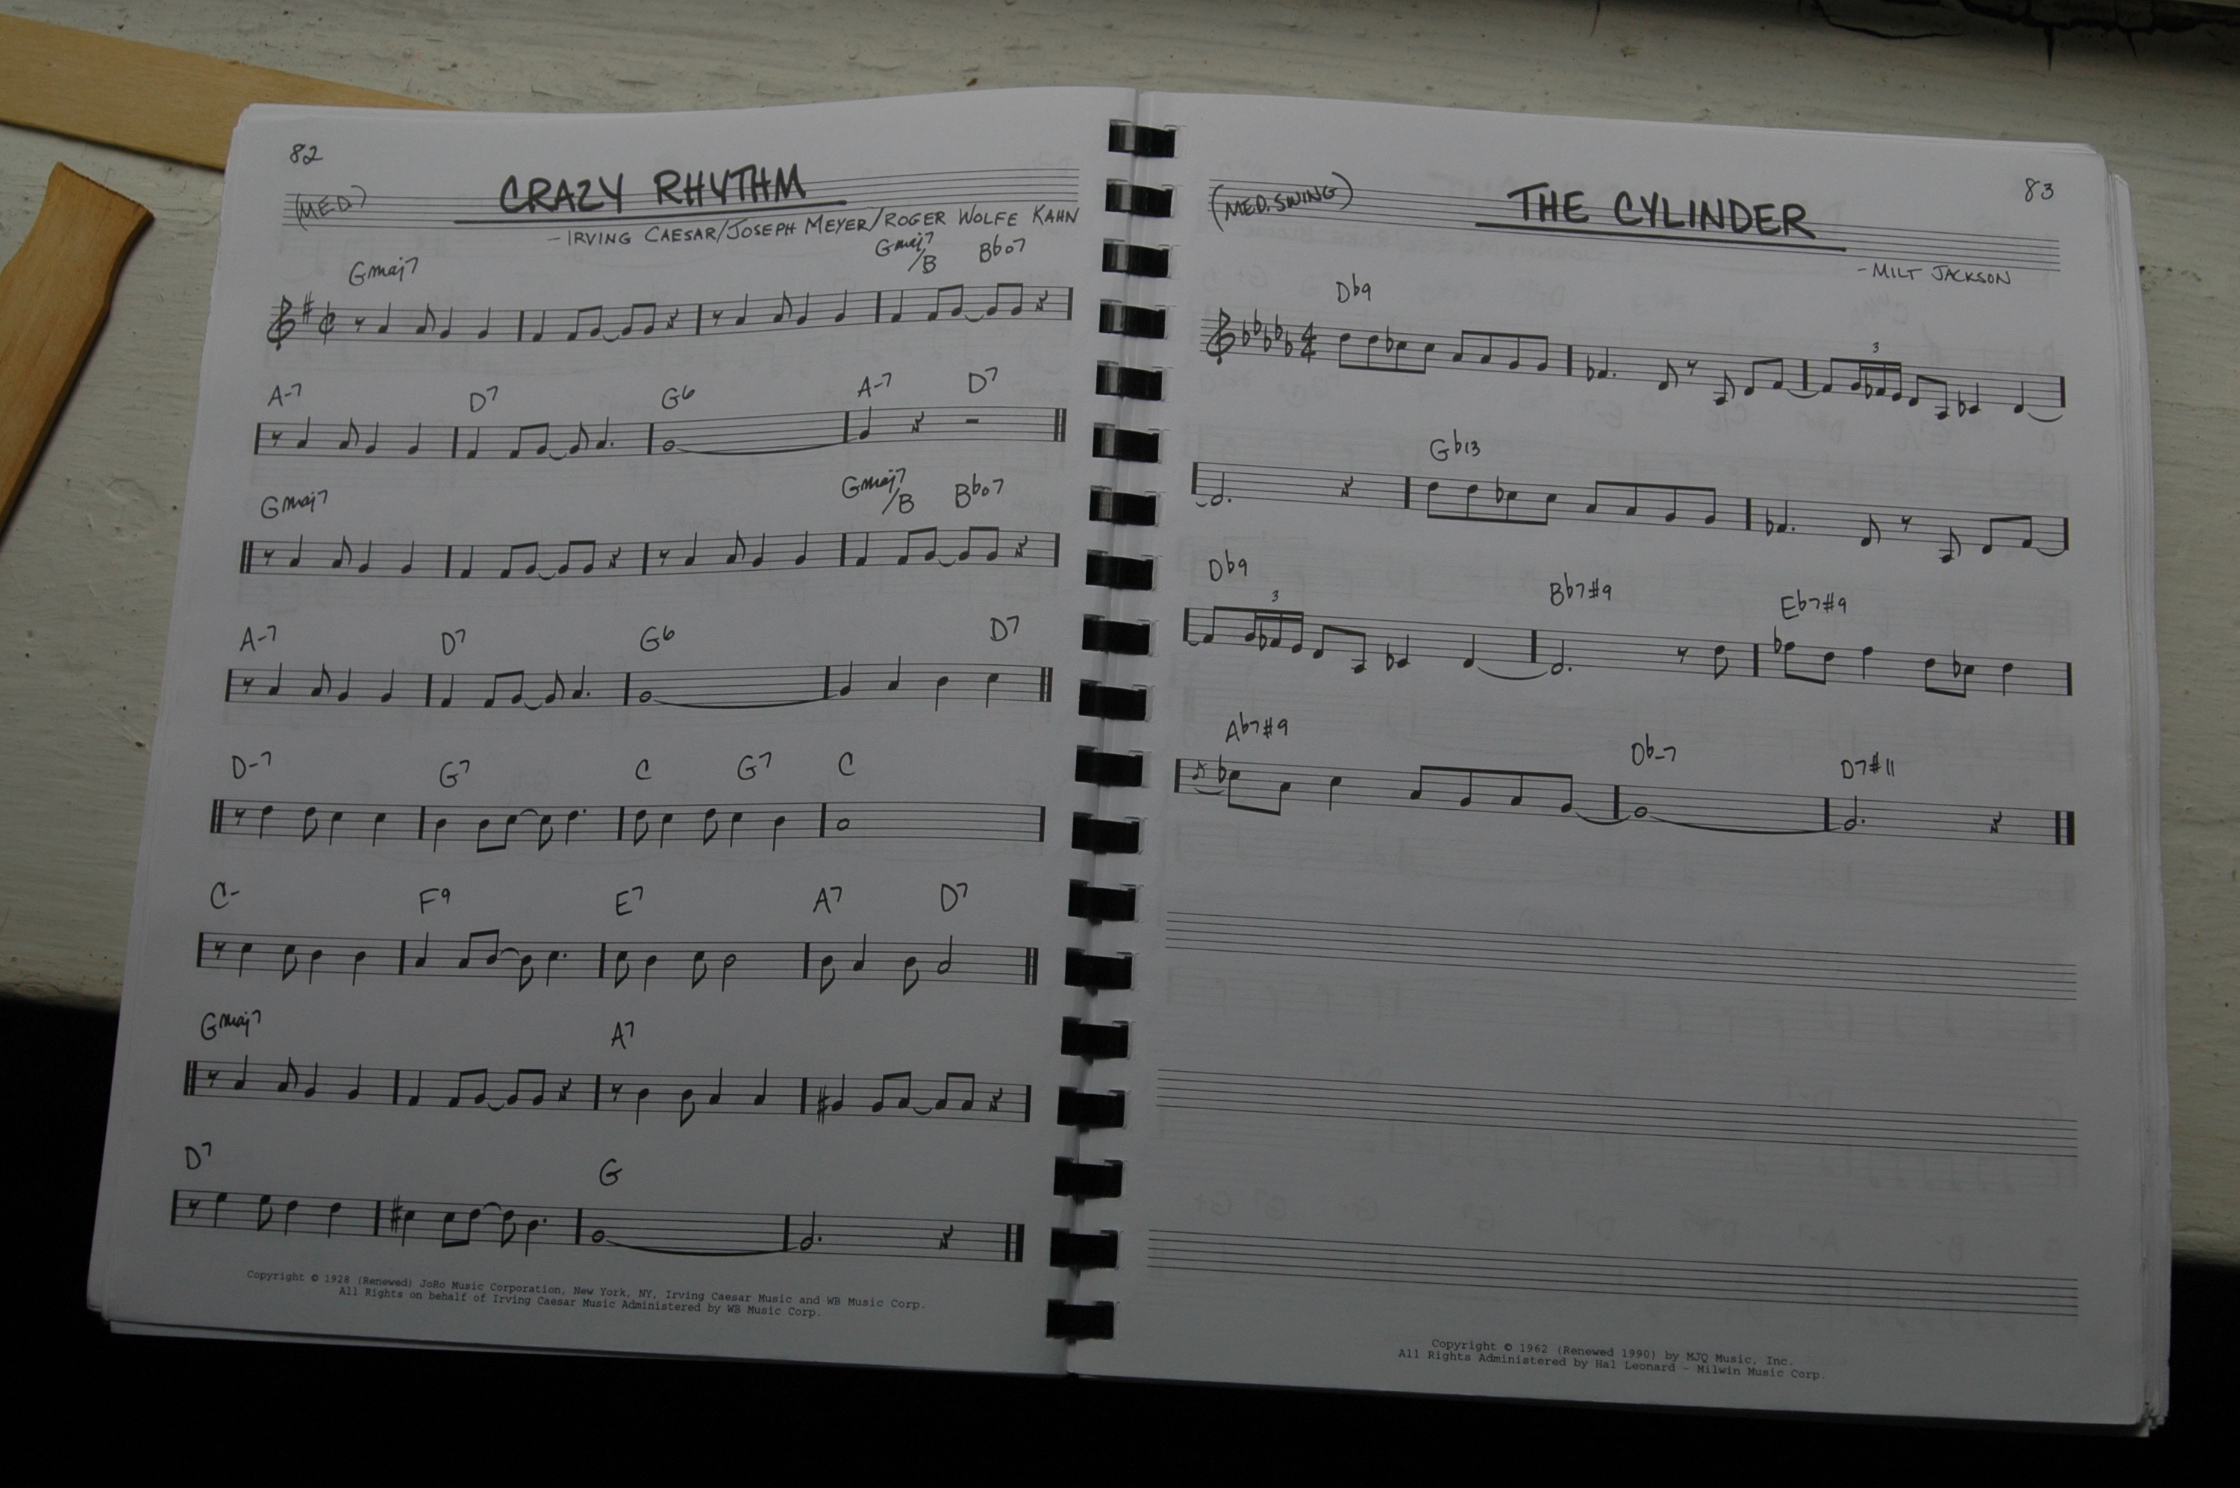 82
CRAZY RHYTHM
(MED.)
- IRVING CAESAR/JOSEPH MEYER/ROGER WOLFE KAHN
Gmaj7 Gmaj7/B Bbo7
A-7 D7 G6 A-7 D7
Gmaj7 Gmaj7/B Bbo7
A-7 D7 G6 D7
D-7 G7 C G7 C
C- F9 E7 A7 D7
Gmaj7 A7
D7 G
Copyright © 1928 (Renewed) JoRo Music Corporation, New York, NY, Irving Caesar Music and WB Music Corp.
All Rights on behalf of Irving Caesar Music Administered by WB Music Corp.
83
(MED. SWING)
THE CYLINDER
- MILT JACKSON
Db9
3
Gb13
Db9 Bb7#9 Eb7#9
3
Ab7#9 Db-7 D7#11
Copyright © 1962 (Renewed 1990) by MJQ Music, Inc.
All Rights Administered by Hal Leonard - Milwin Music Corp.